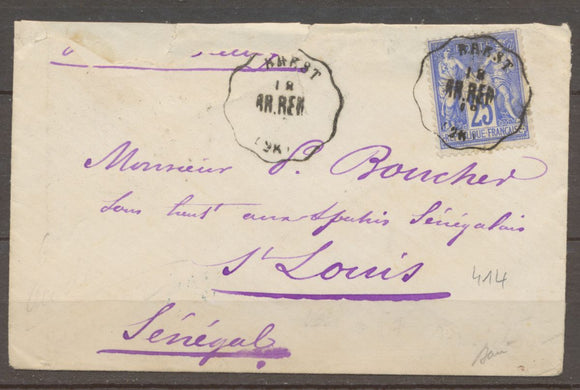 BREST
18
AR.REN
(2K)
BREST
18
AR.REN
2K
25
RÉPUBLIQUE FRANÇAISE
Monsieur P. Boucher
Sous lieut aux Spahis Sénégalais
St Louis
414
Sénégal